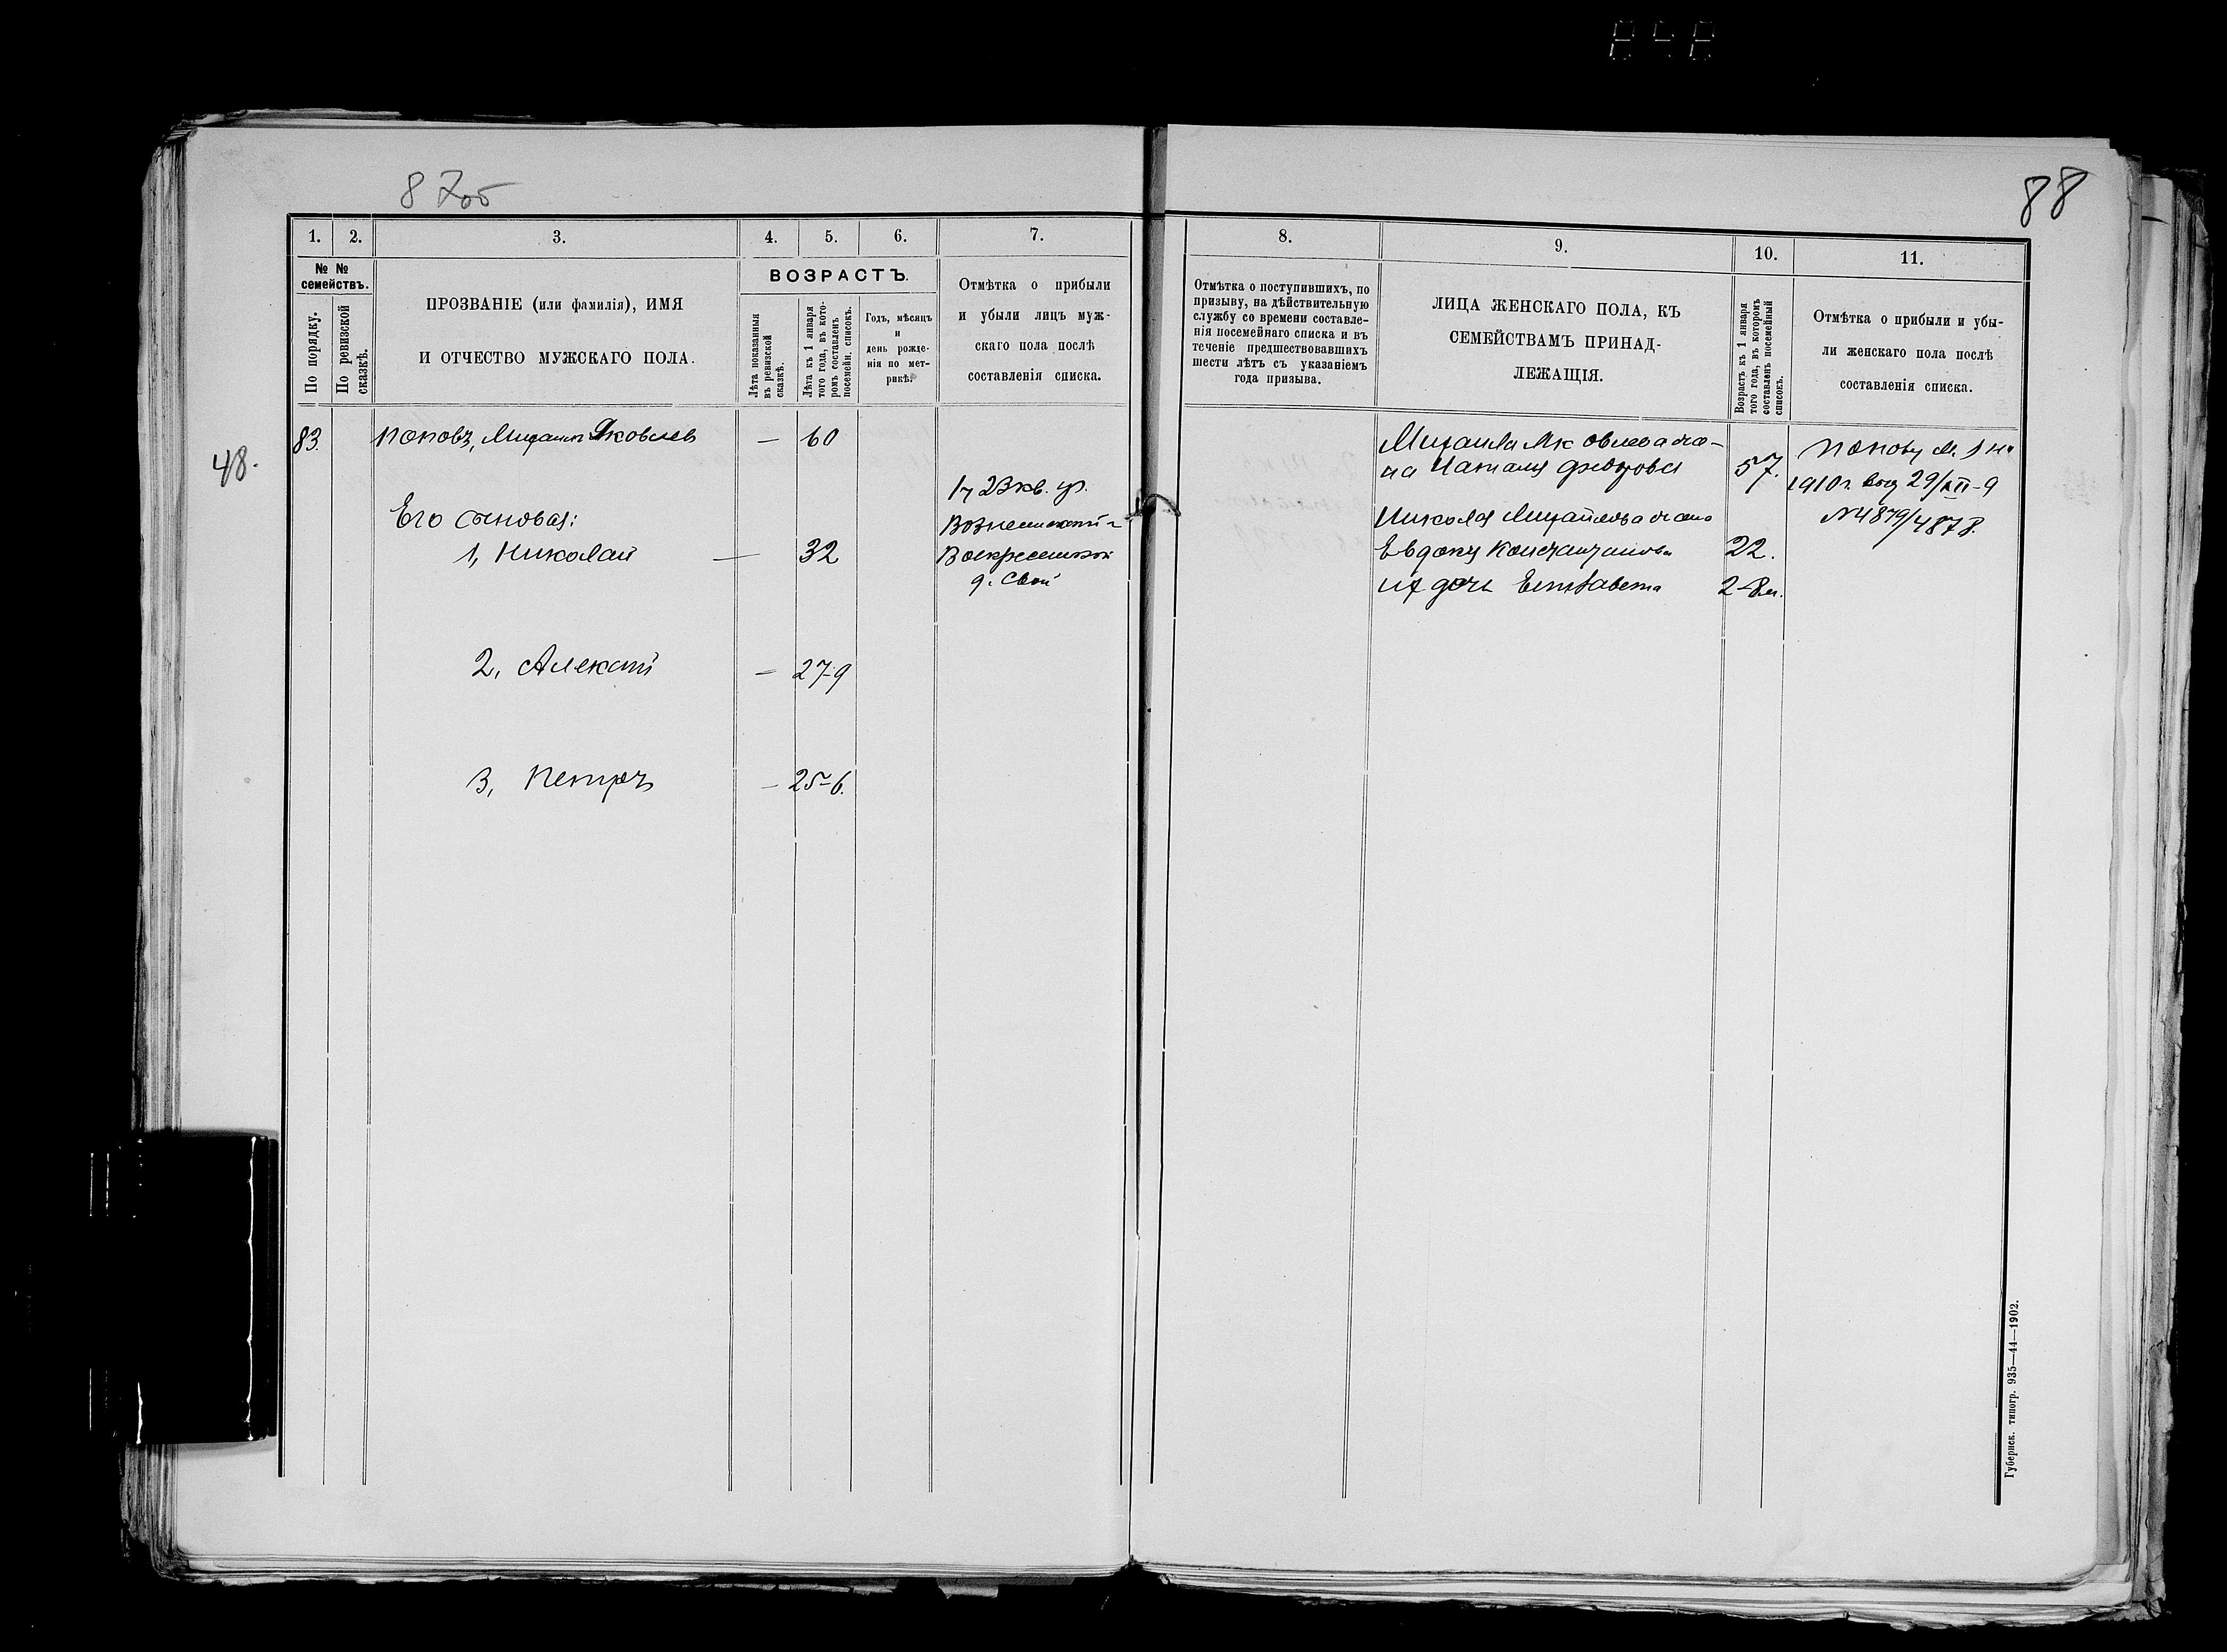 87об
88
1.
2.
3.
4.
5.
6.
7.
№ №
семействъ.
По порядку.
По ревизской
сказкѣ.
ПРОЗВАНІЕ (или фамилія), ИМЯ
И ОТЧЕСТВО МУЖСКАГО ПОЛА.
ВОЗРАСТЪ.
Лѣта показанныя
въ ревизской
сказкѣ.
Лѣта къ 1 января
того года, въ кото-
ромъ составленъ
посемейн. списокъ.
Годъ, мѣсяцъ
и
день рожде-
нія по мет-
рикѣ.
Отмѣтка о прибыли
и убыли лицъ муж-
скаго пола послѣ
составленія списка.
83.
48.
Поповъ, Михаилъ Яковлев
— 60
Его сыновья:
1, Николай
— 32
1 ч 23 кв.
Вознесенской
Воскресенской
д. Свой
2, Алексѣй
— 27-9
3, Петръ
— 25-6.
8.
9.
10.
11.
Отмѣтка о поступившихъ, по
призыву, на дѣйствительную
службу со времени составле-
нія посемейнаго списка и въ
теченіе предшествовавшихъ
шести лѣтъ съ указаніемъ
года призыва.
ЛИЦА ЖЕНСКАГО ПОЛА, КЪ
СЕМЕЙСТВАМЪ ПРИНАД-
ЛЕЖАЩІЯ.
Возрастъ къ 1 января
того года, въ которомъ
составленъ посемейный
списокъ.
Отмѣтка о прибыли и убы-
ли женскаго пола послѣ
составленія списка.
Михаила Яковлева же-
на Наталья
57.
Николая Михайлова жена
Евдокия Константинова
22.
их дочь Елизавета
2-8м.
Попову М.
1910 г. 29/XII-9
№ 4879/4878.
Губернск. типогр. 935—44—1902.